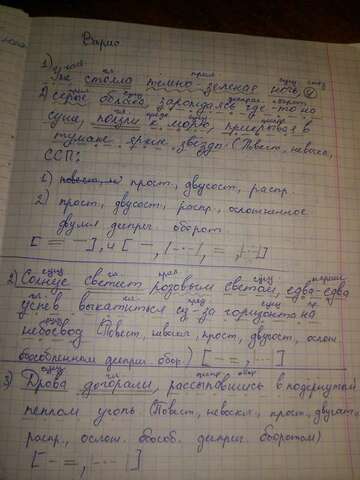 Варис
1) глаг прил сущ союз
Уже стояла темно-зелёная ночь, и
2) серые облака, зарождаясь где-то на
суше, ползли к морю, прикрывая в
тумане яркие звёзды. (Повест., невоскл.,
ССП:
1) прост., двусост., распр.
2) прост., двусост., распр., осложнённое
двумя дееприч. оборот.
[= —], и [—, |-·-|, =, |-·-|]
2) Солнце светит розовым светом, едва-едва
успев выкатиться из-за горизонта на
небосвод (Повест., невоскл., прост., двусост., ослож.
обособленным дееприч. обор.) [— =, |-·-]
3) Дрова догорали, рассыпавшись в подёрнутый
пеплом уголь (Повест., невоскл., прост., двусост.,
распр., ослож. обособ. дееприч. оборотом)
[— =, |-·-|]